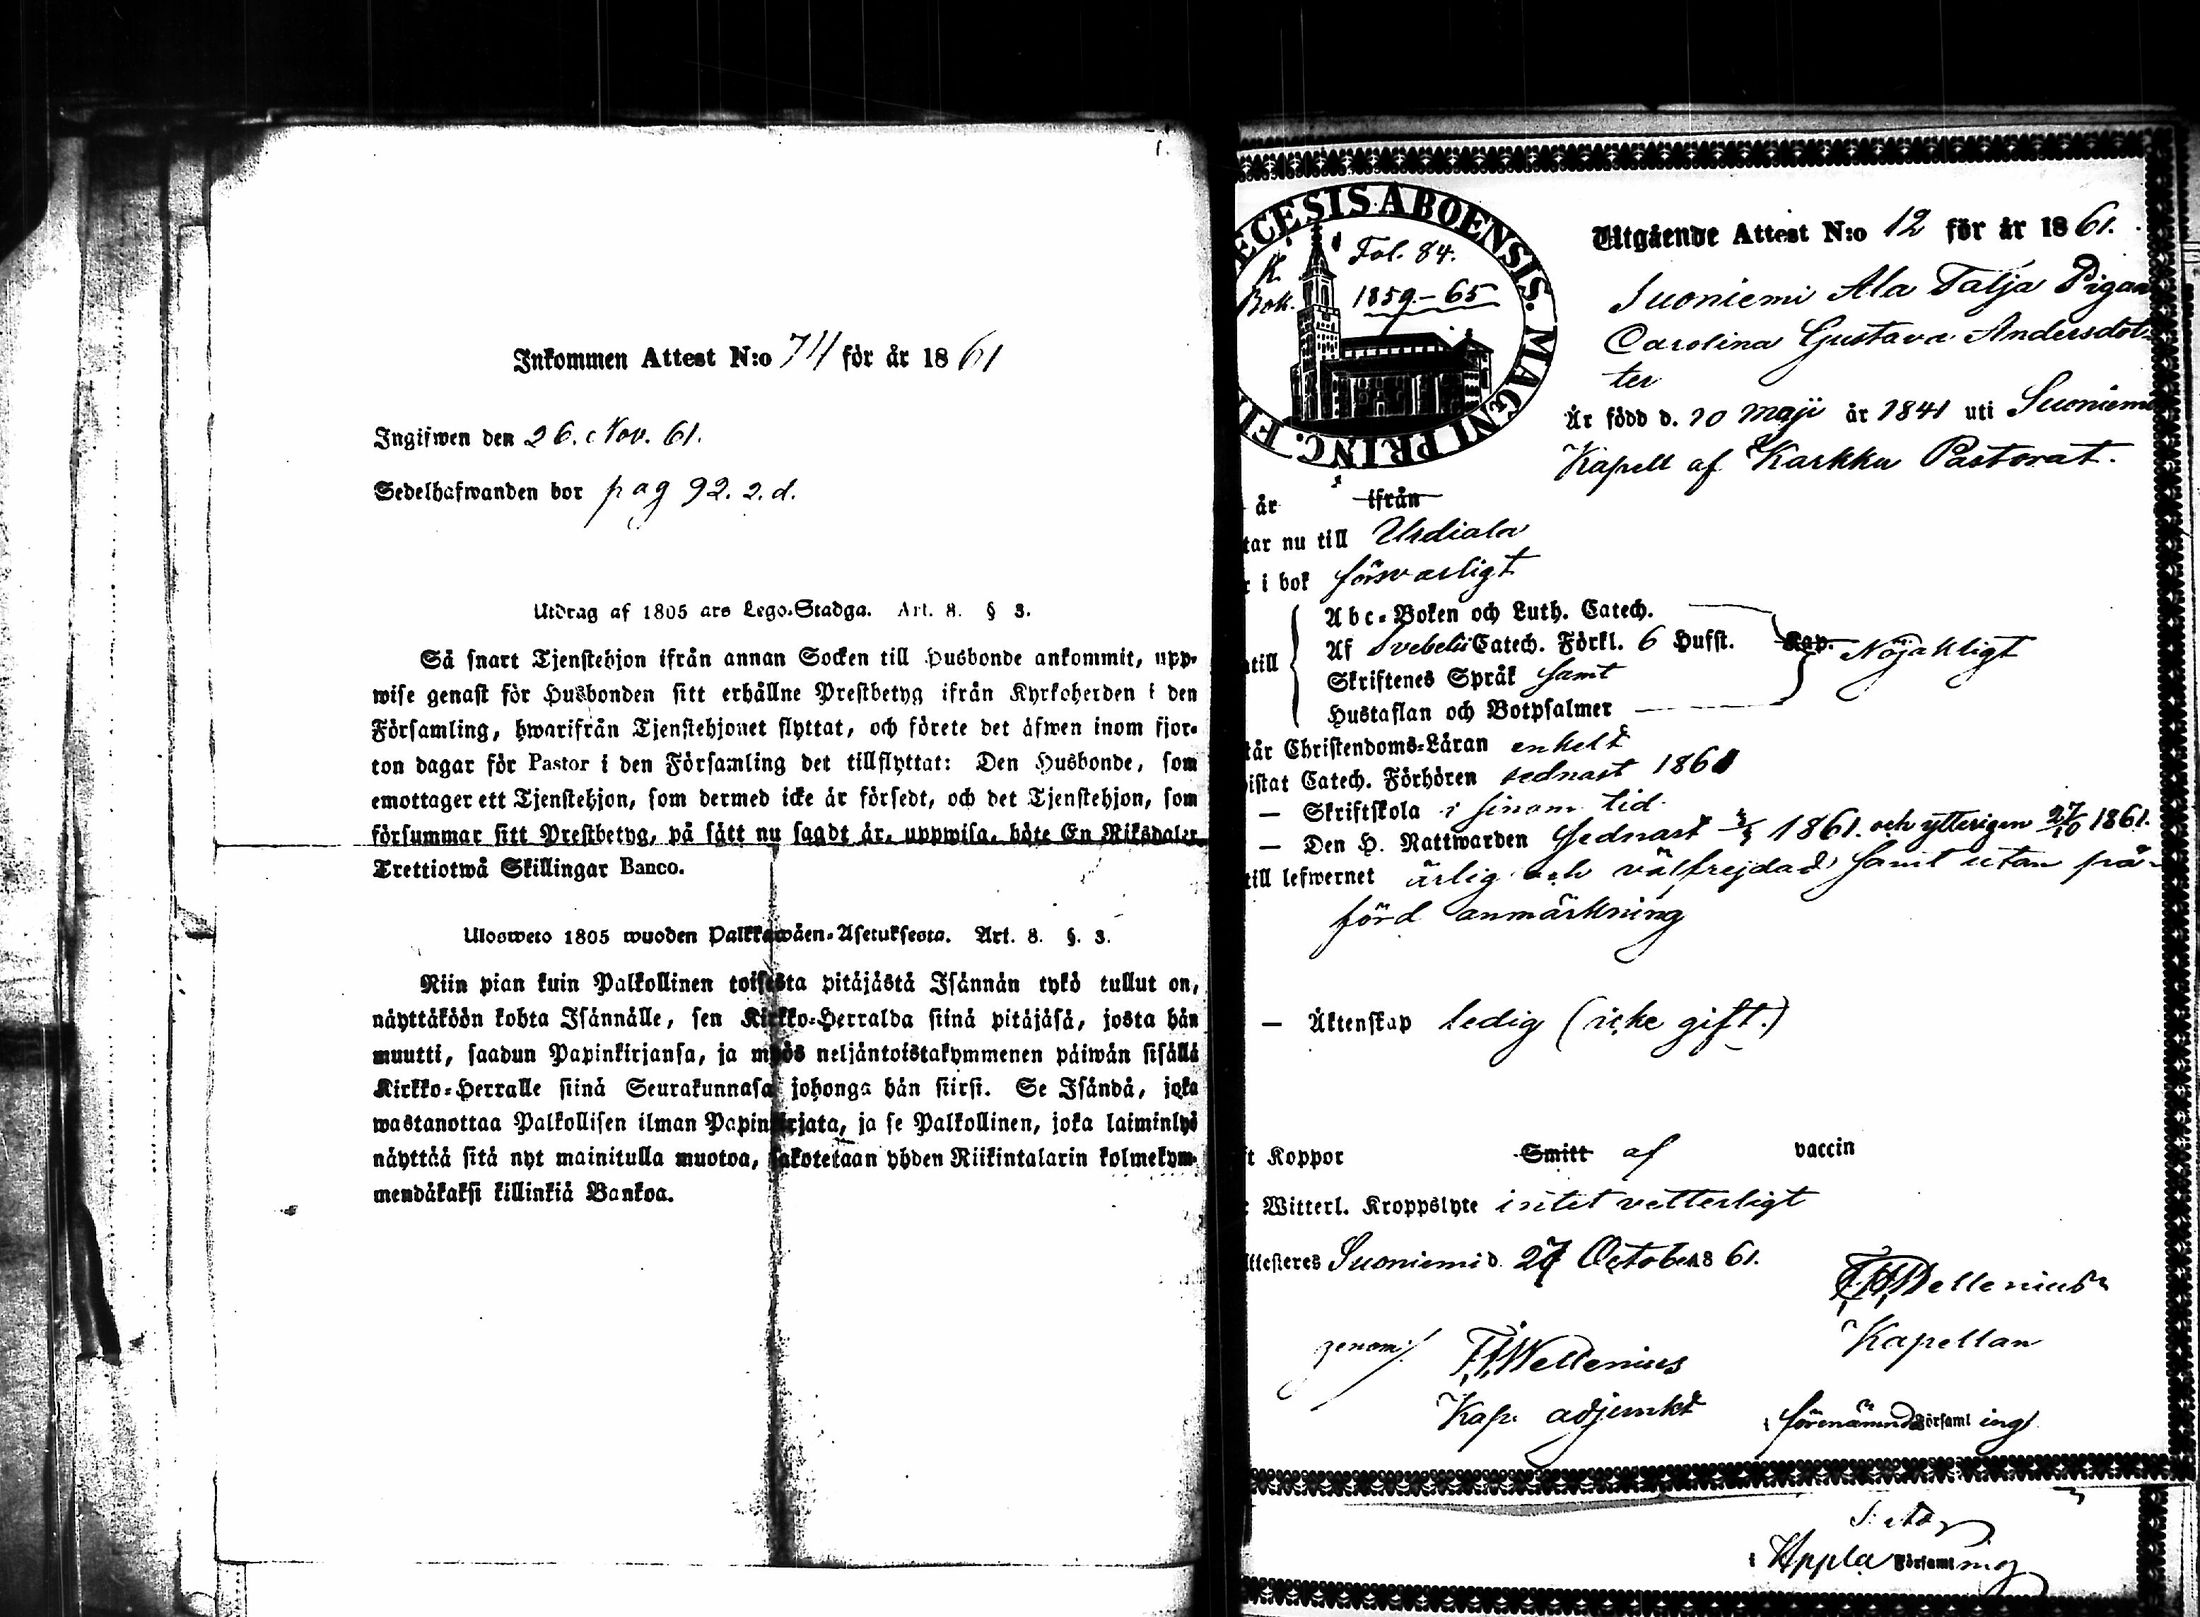 Inkommen Attest N:o 74 för år 1861
Ingifwen den 26. Nov. 61.
Sedelhafwanden bor pag 92. 2. d.
Utdrag af 1805 ars Lego-Stadga. Art. 8. § 3.
Så snart Tjenstehjon ifrån annan Socken till Husbonde ankommit, upp-
wise genast för Husbonden sitt erhållne Prestbetyg ifrån Kyrkoherden i den
Församling, hwarifrån Tjenstehjonet flyttat, och förete det äfwen inom fjor-
ton dagar för Pastor i den Församling det tillflyttat: Den Husbonde, som
emottager ett Tjenstehjon, som dermed icke är försedt, och det Tjenstehjon, som
försummar sitt Prestbetyg, på sätt nu sagdt är, uppwisa, böte En Riksdaler
Trettiotwå Skillingar Banco.
Ulosweto 1805 wuoden Palkkawäen-Asetuksesta. Art. 8. §. 3.
Niin pian kuin Palkollinen toisesta pitäjästä Isännän tykö tullut on,
näyttäköön kohta Isännälle, sen Kirkko-Herralda siinä pitäjäsä, josta hän
muutti, saadun Papinkirjansa, ja myös neljäntoistakymmenen päiwän sisällä
Kirkko-Herralle siinä Seurakunnasa johonga hän siirsi. Se Isändä, joka
wastanottaa Palkollisen ilman Papinkirjata, ja se Palkollinen, joka laiminlyö
näyttää sitä nyt mainitulla muotoa, sakotetaan yhden Riikintalarin kolmekym-
mendäkaksi killinkiä Bankoa.
ECESIS ABOENSIS. MAGNI PRINC. FI
K. Bok. Fol. 84.
1859-65
Utgående Attest N:o 12 för år 1861.
Suoniemi Ala Talja Pigan
Carolina Gustava Andersdot-
ter
Är född d. 10 maji år 1841 uti Suoniemi
Kapell af Karkku Pastorat.
år ifrån
tar nu till Urdiala
r i bok försvarligt
Abc-Boken och Luth. Catech.
till Af Svebelii Catech. Förkl. 6 Hufst. Kap. Nöjaktigt
Skriftenes Språk samt
Hustaflan och Botpsalmer
tår Christendoms-Läran enkelt
istat Catech. Förhören sednast 1861
— Skriftskola i sinom tid
— Den H. Nattwarden sednast 1861. och ytterigen 27/10 1861.
till lefwernet ärlig och välfrejdad samt utan på-
förd anmärkning
— Äktenskap ledig (icke gift.)
ft Koppor Smitt af vaccin
Witterl. Kroppslyte intet vetterligt
ttesteres Suoniemi d. 27 October 1861.
Wellenius
Kapellan
genom Wellenius
Kap. adjunkt
i förenämnd Församling
i Församling